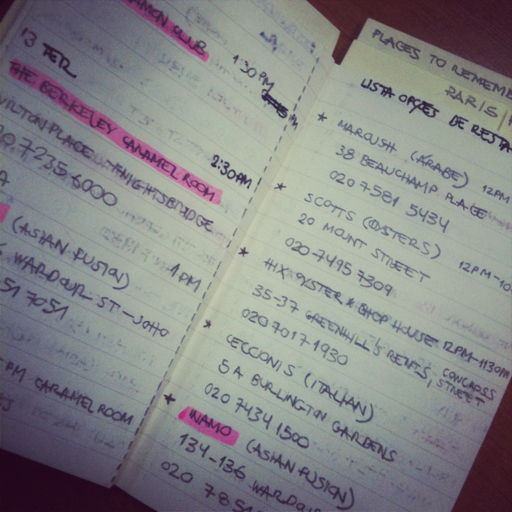 1:30 PM
13 FER
THE BERKELEY CARAMEL ROOM 2:30PM
WILTON PLACE - KNIGHTSBRIDGE
7235 6000
1 PM
(ASIAN FUSION)
WARDOUR ST - SOHO
51 7051
PM CARAMEL ROOM
PLACES TO REMEMBE
PARIS /
LISTA OPÇÕES DE RESTA
* MAROUSH (ÁRABE) 12PM
38 BEAUCHAMP PLACE
020 7581 5434
* SCOTTS (OYSTERS) 12PM-10
20 MOUNT STREET
020 7495 7309
* HIX OYSTER & CHOP HOUSE 12PM-1130PM
35-37 GREENHILL'S RENTS, COWCROSS STREET
020 7017 1930
* CECCONIS (ITALIAN)
5A BURLINGTON GARDENS
020 7434 1500
* INAMO (ASIAN FUSION)
134-136 WARDOUR
020 7851